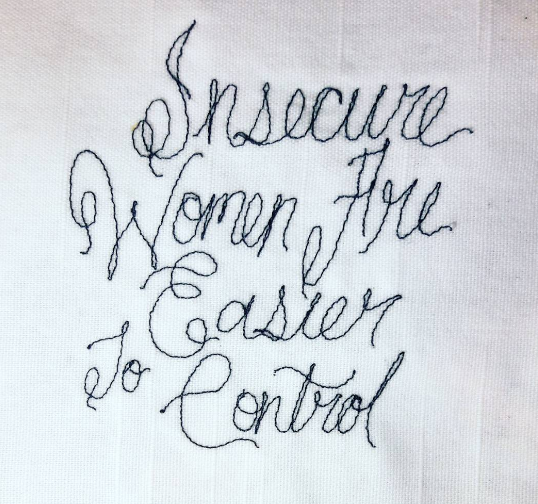 Insecure
Women Are
Easier
To Control